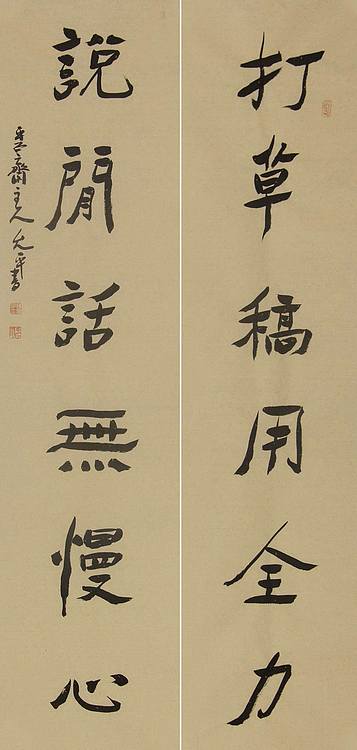 打草稿用全力
說閒話無慢心
齋主人允平書